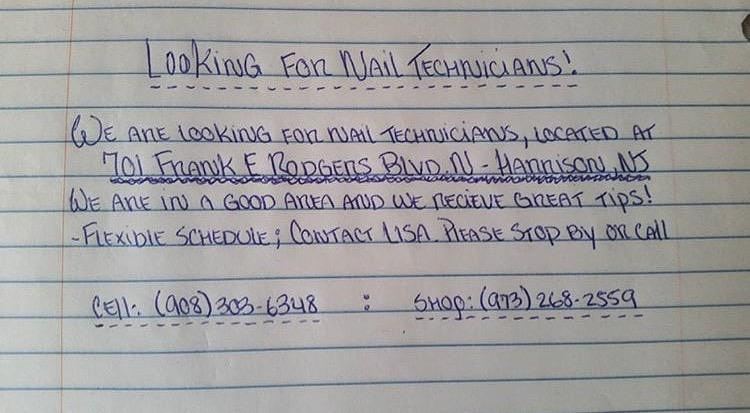 Looking For Nail Technicians!
We are looking for nail technicians, located at
701 Frank E Rodgers Blvd N - Harrison, NJ
We are in a good area and we recieve great tips!
- Flexible schedule; Contact Lisa. Please stop by or call
Cell: (908) 303-6348 : Shop: (973) 268-2559